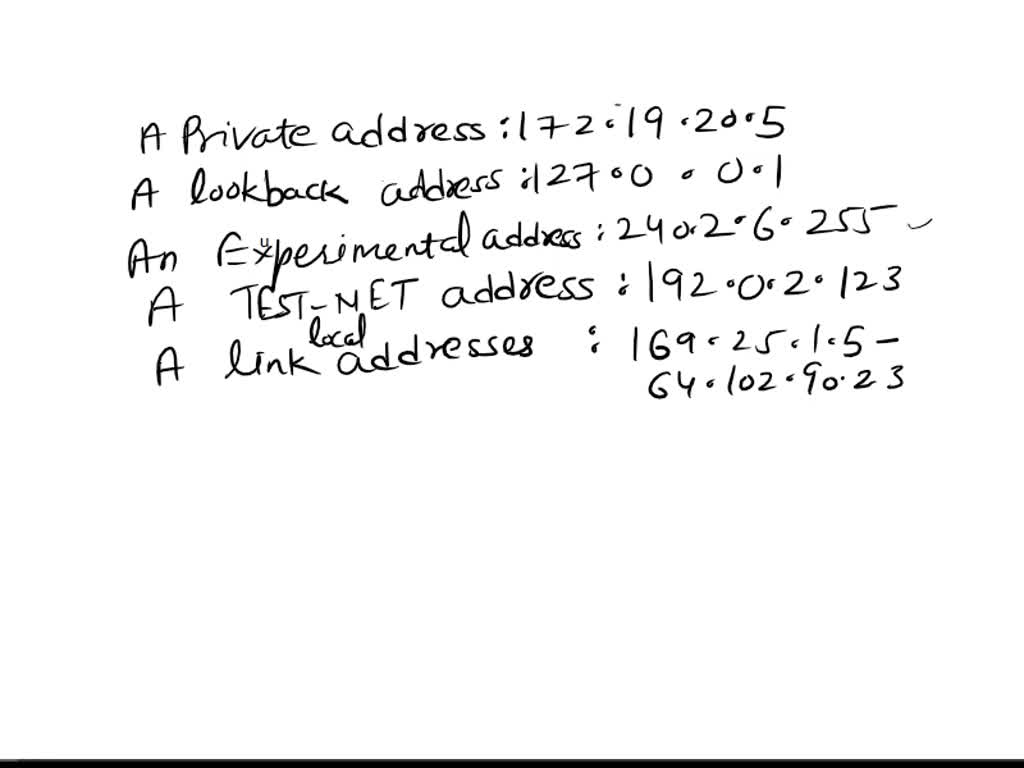 A Private address : 172.19.20.5
A lookback address : 127.0.0.1
An Experimental address : 240.2.6.255
A TEST-NET address : 192.0.2.123
A link local addresses : 169.25.1.5 -
64.102.90.23